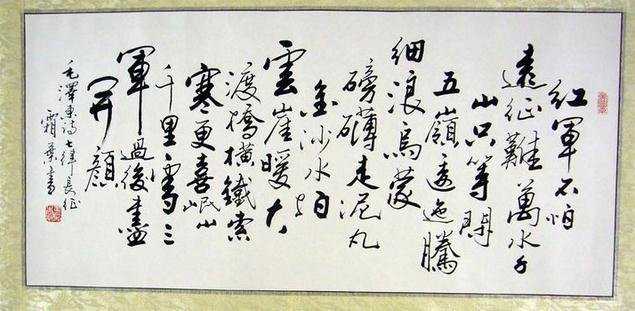 紅軍不怕
遠征難萬水千
山只等閑
五嶺逶迤騰
細浪烏蒙
磅礴走泥丸
金沙水拍
雲崖暖大
渡橋橫鐵索
寒更喜岷山
千里雪三
軍過後盡
開顏
毛澤東詩七律長征
霜葉書